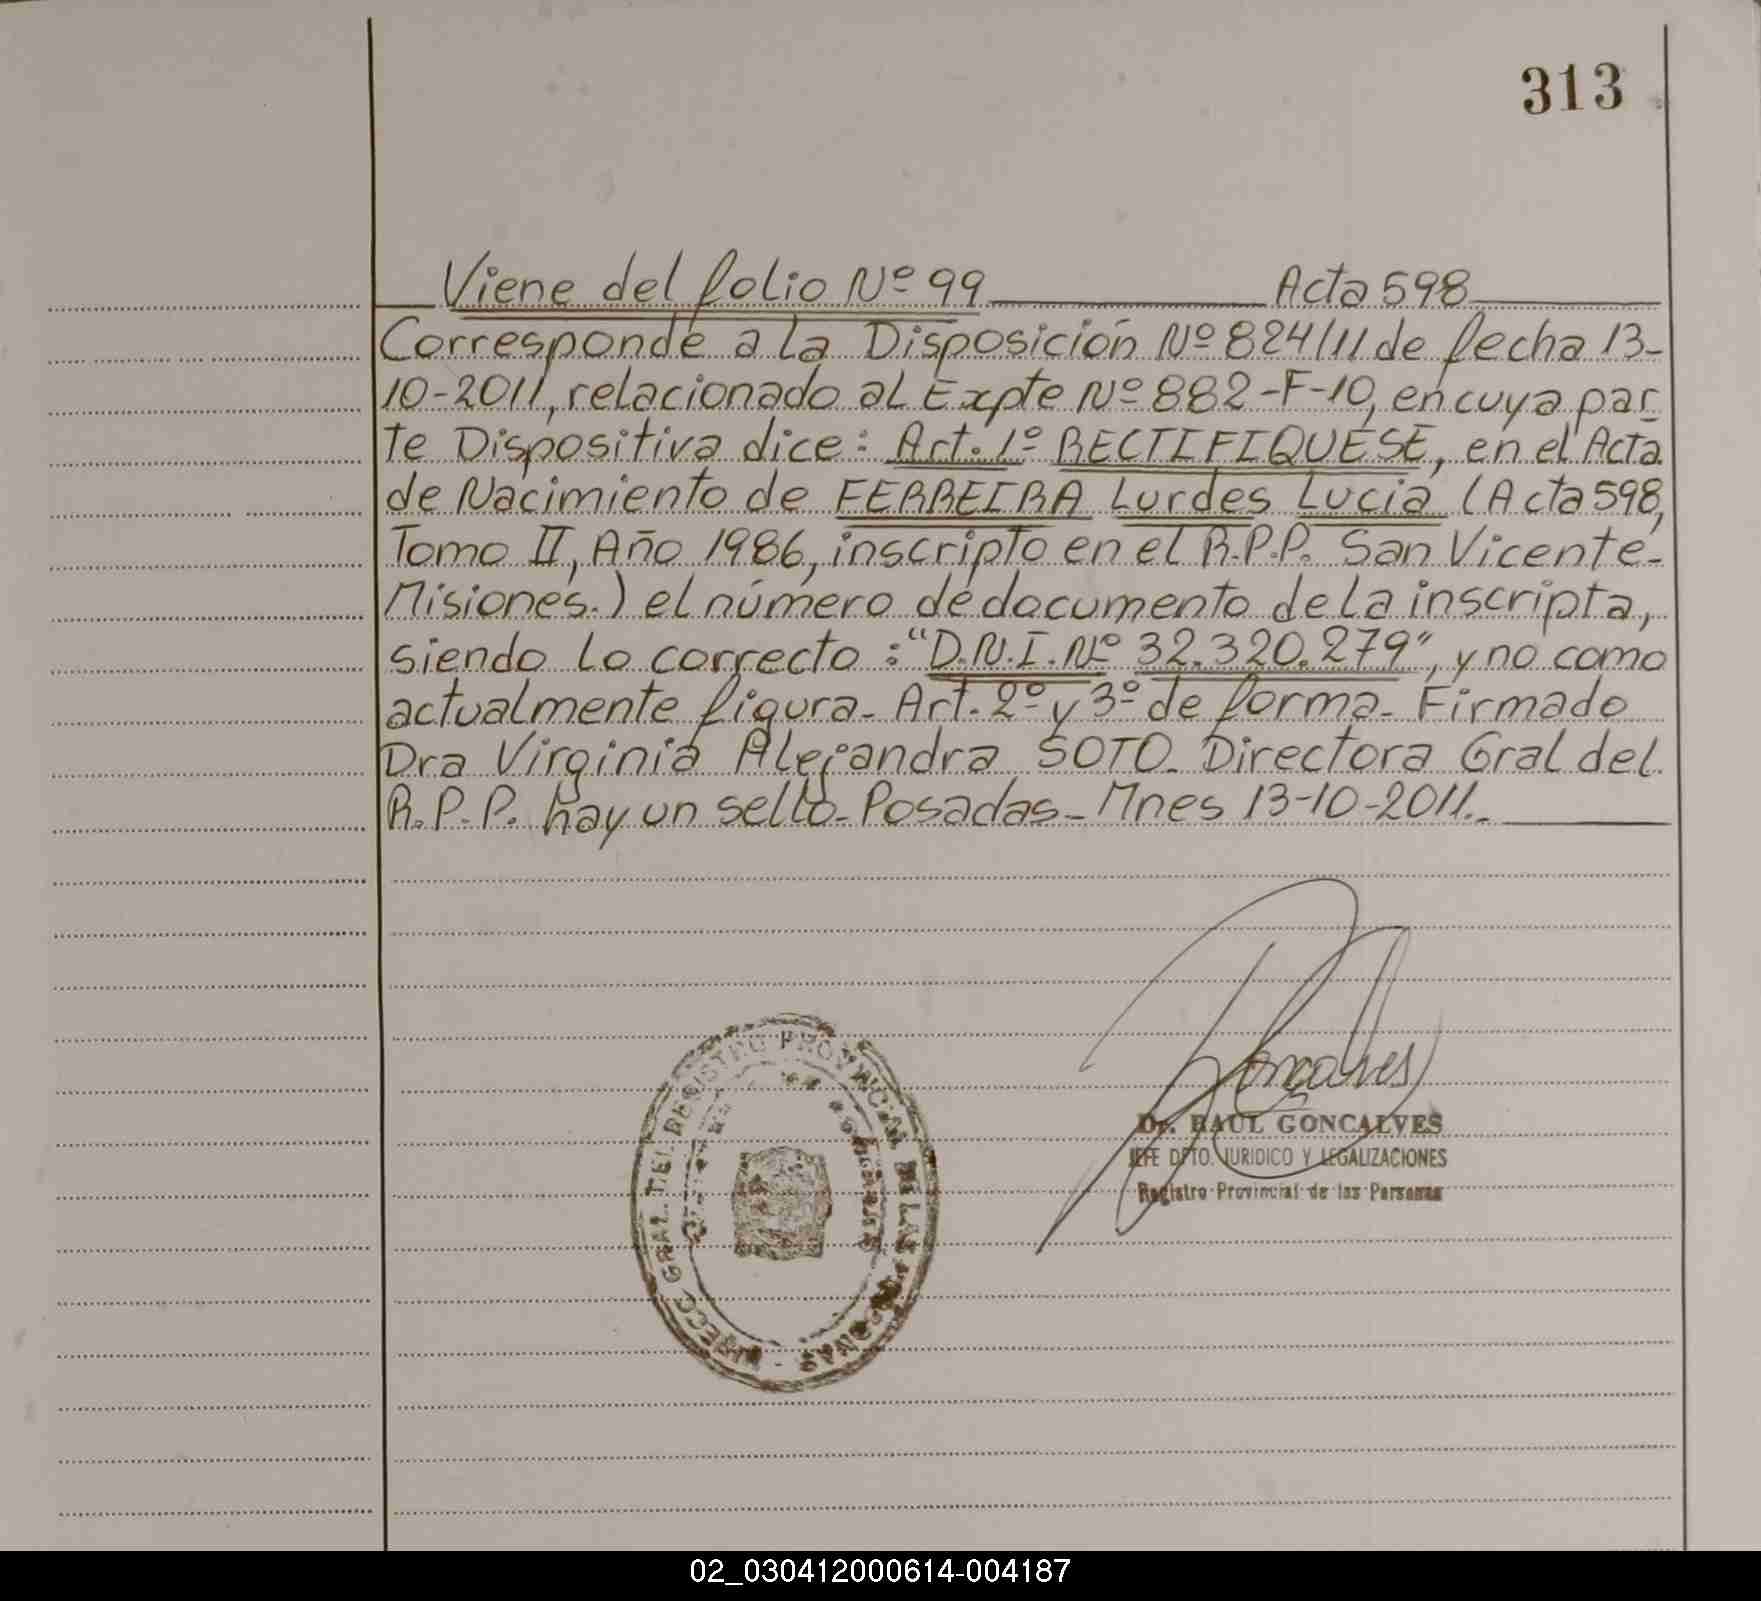 313
Viene del folio Nº 99 Acta 598
Corresponde a la Disposición Nº 824/11 de fecha 13-
10-2011, relacionado al Expte Nº 882-F-10, en cuya par
te Dispositiva dice: Art. 1º RECTIFIQUESE, en el Acta
de Nacimiento de FERREIRA Lurdes Lucia (Acta 598,
Tomo II, Año 1986, inscripto en el R.P.P. San Vicente-
Misiones.) el número de documento de la inscripta,
siendo lo correcto: "D.N.I. Nº 32.320.279", y no como
actualmente figura- Art. 2º y 3º de forma- Firmado
Dra Virginia Alejandra SOTO- Directora Gral del
R.P.P. hay un sello- Posadas- Mnes 13-10-2011.-
Goncalves
Dr. RAUL GONCALVES
JEFE DPTO. JURIDICO Y LEGALIZACIONES
Registro Provincial de las Personas
DIRECC. GRAL. DEL REGISTRO PROVINCIAL DE LAS PERSONAS
02_030412000614-004187